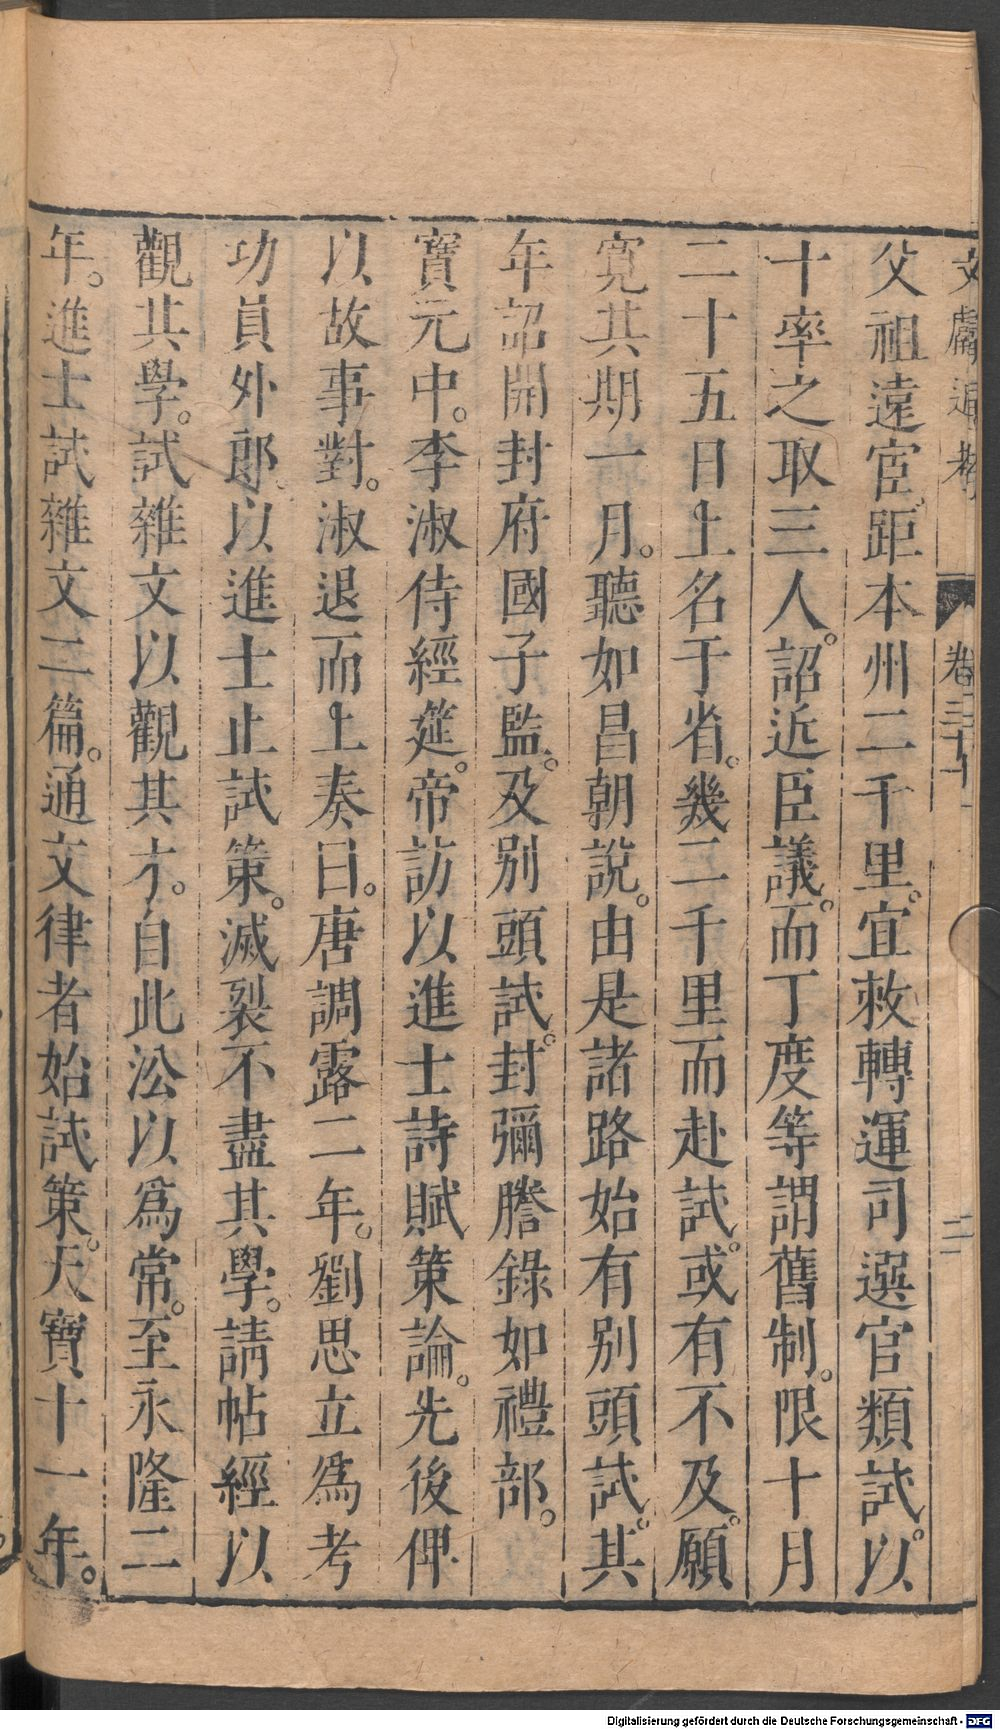 文獻通考 卷三十一 二
父祖遠宦。距本州二千里。宜敕轉運司選官類試。以
十率之取三人。詔近臣議。而丁度等謂舊制。限十月
二十五日上名于省。幾二千里而赴試。或有不及。願
寬其期一月。聽如昌朝說。由是諸路始有別頭試。其
年詔開封府國子監。及別頭試。封彌謄錄如禮部。
寶元中。李淑侍經筵。帝訪以進士詩賦策論。先後俾
以故事對。淑退而上奏曰。唐調露二年。劉思立為考
功員外郎。以進士止試策。滅裂不盡其學。請帖經以
觀其學。試雜文以觀其才。自此沿以為常。至永隆二
年。進士試雜文二篇。通文律者始試策。天寶十一年。
Digitalisierung gefördert durch die Deutsche Forschungsgemeinschaft - DFG